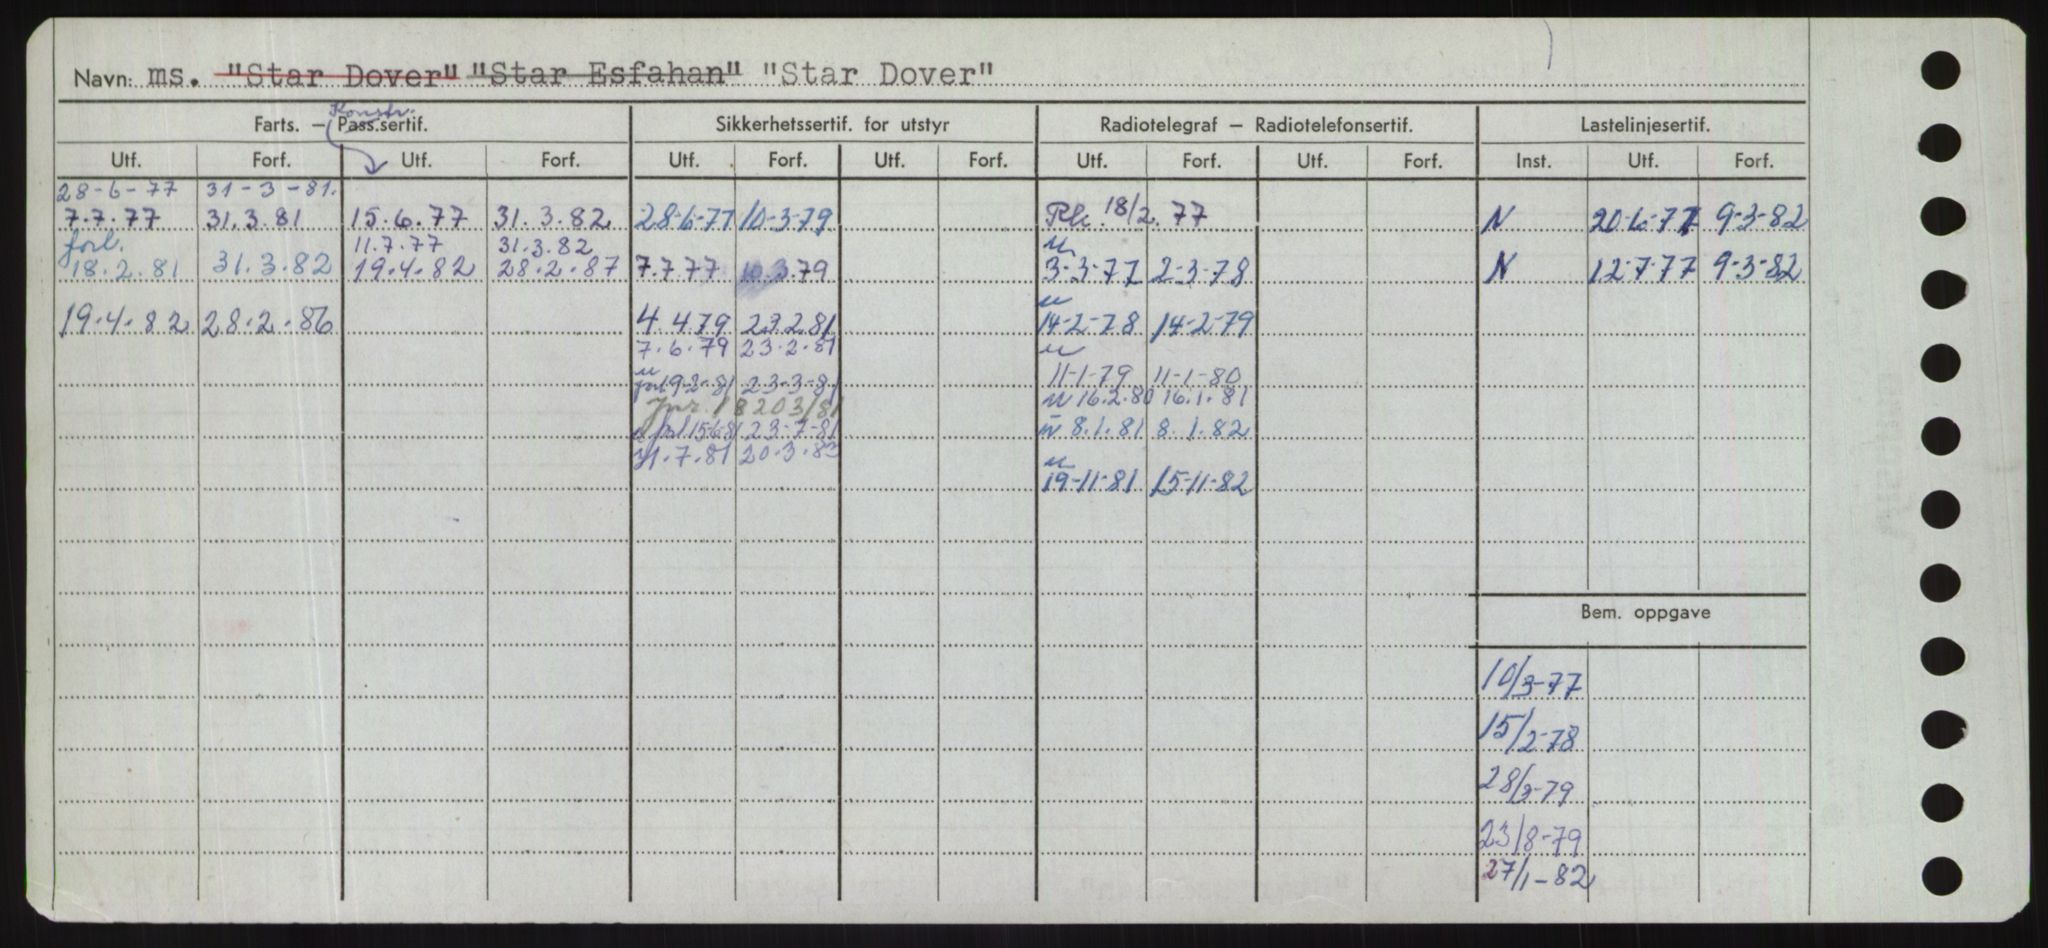 Navn: ms. "Star Dover" "Star Esfahan" "Star Dover"
Konstr.
Farts. — Pass.sertif. Sikkerhetssertif. for utstyr Radiotelegraf — Radiotelefonsertif. Lastelinjesertif.
Utf. Forf. Utf. Forf. Utf. Forf. Utf. Forf. Utf. Forf. Utf. Forf. Inst. Utf. Forf.
28-6-77 31-3-81.
7.7.77 31.3.81 15.6.77 31.3.82 28-6-77 10-3-79 18/2.77 N 20-6-77 9-3-82
forl. 11.7.77 31.3.82
18.2.81 31.3.82 19.4.82 28.2.87 7.7.77 10.3.79 3-3-77 2-3-78 N 12-7-77 9-3-82
19.4.82 28.2.86 4.4.79 23.2.81 14-2-78 14-2-79
7.6.79 23.2.81
19-2-81 23-3-81 11-1-79 11-1-80
Jnr. 18203/81 16.2.80 16.1.81
15.6.81 23-7-81 8.1.81 8.1.82
31.7.81 20.3.83
19-11-81 15-11-82
Bem. oppgave
10/3-77
15/2-78
28/3-79
23/8-79
27/1-82